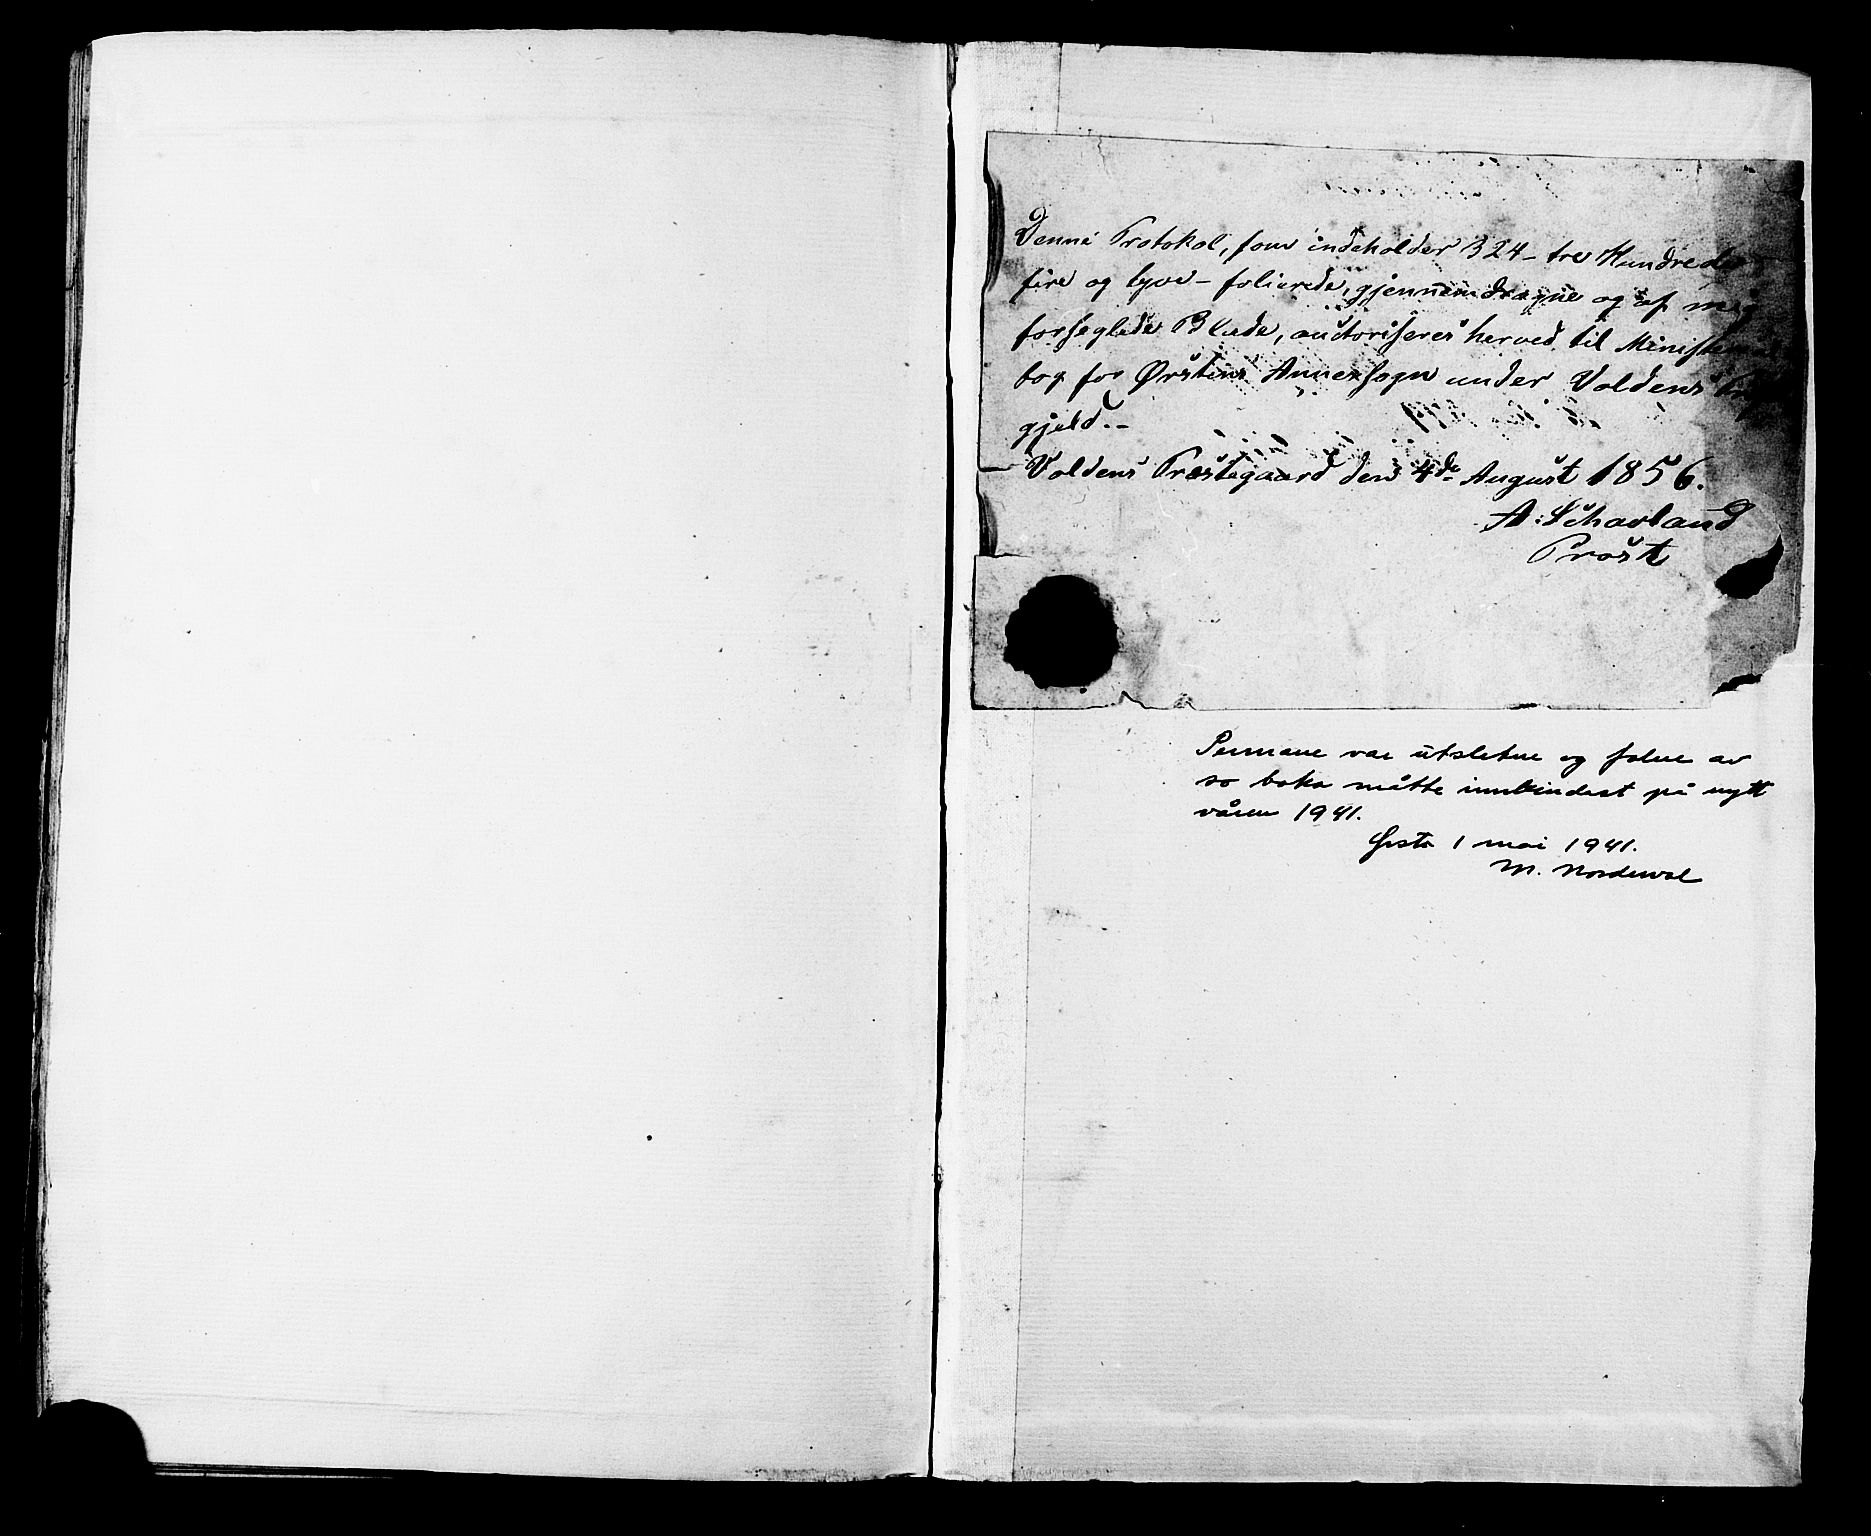 Denne Protokol, som indeholder 324 - tre Hundrede
fire og tyve - folierede, gjennemdragne og af mig
forseglede Blade, auctoriseres herved til Ministerial
bog for Ørstens Annexsogn under Voldens
gjeld.-
Voldens Præstegaard den 4de August 1856.
A: Scharland
Provst
Permane var utsletne og falne av
so boka måtte innbindast på nytt
våren 1941.
Ørsta 1 mai 1941.
M. Norderval